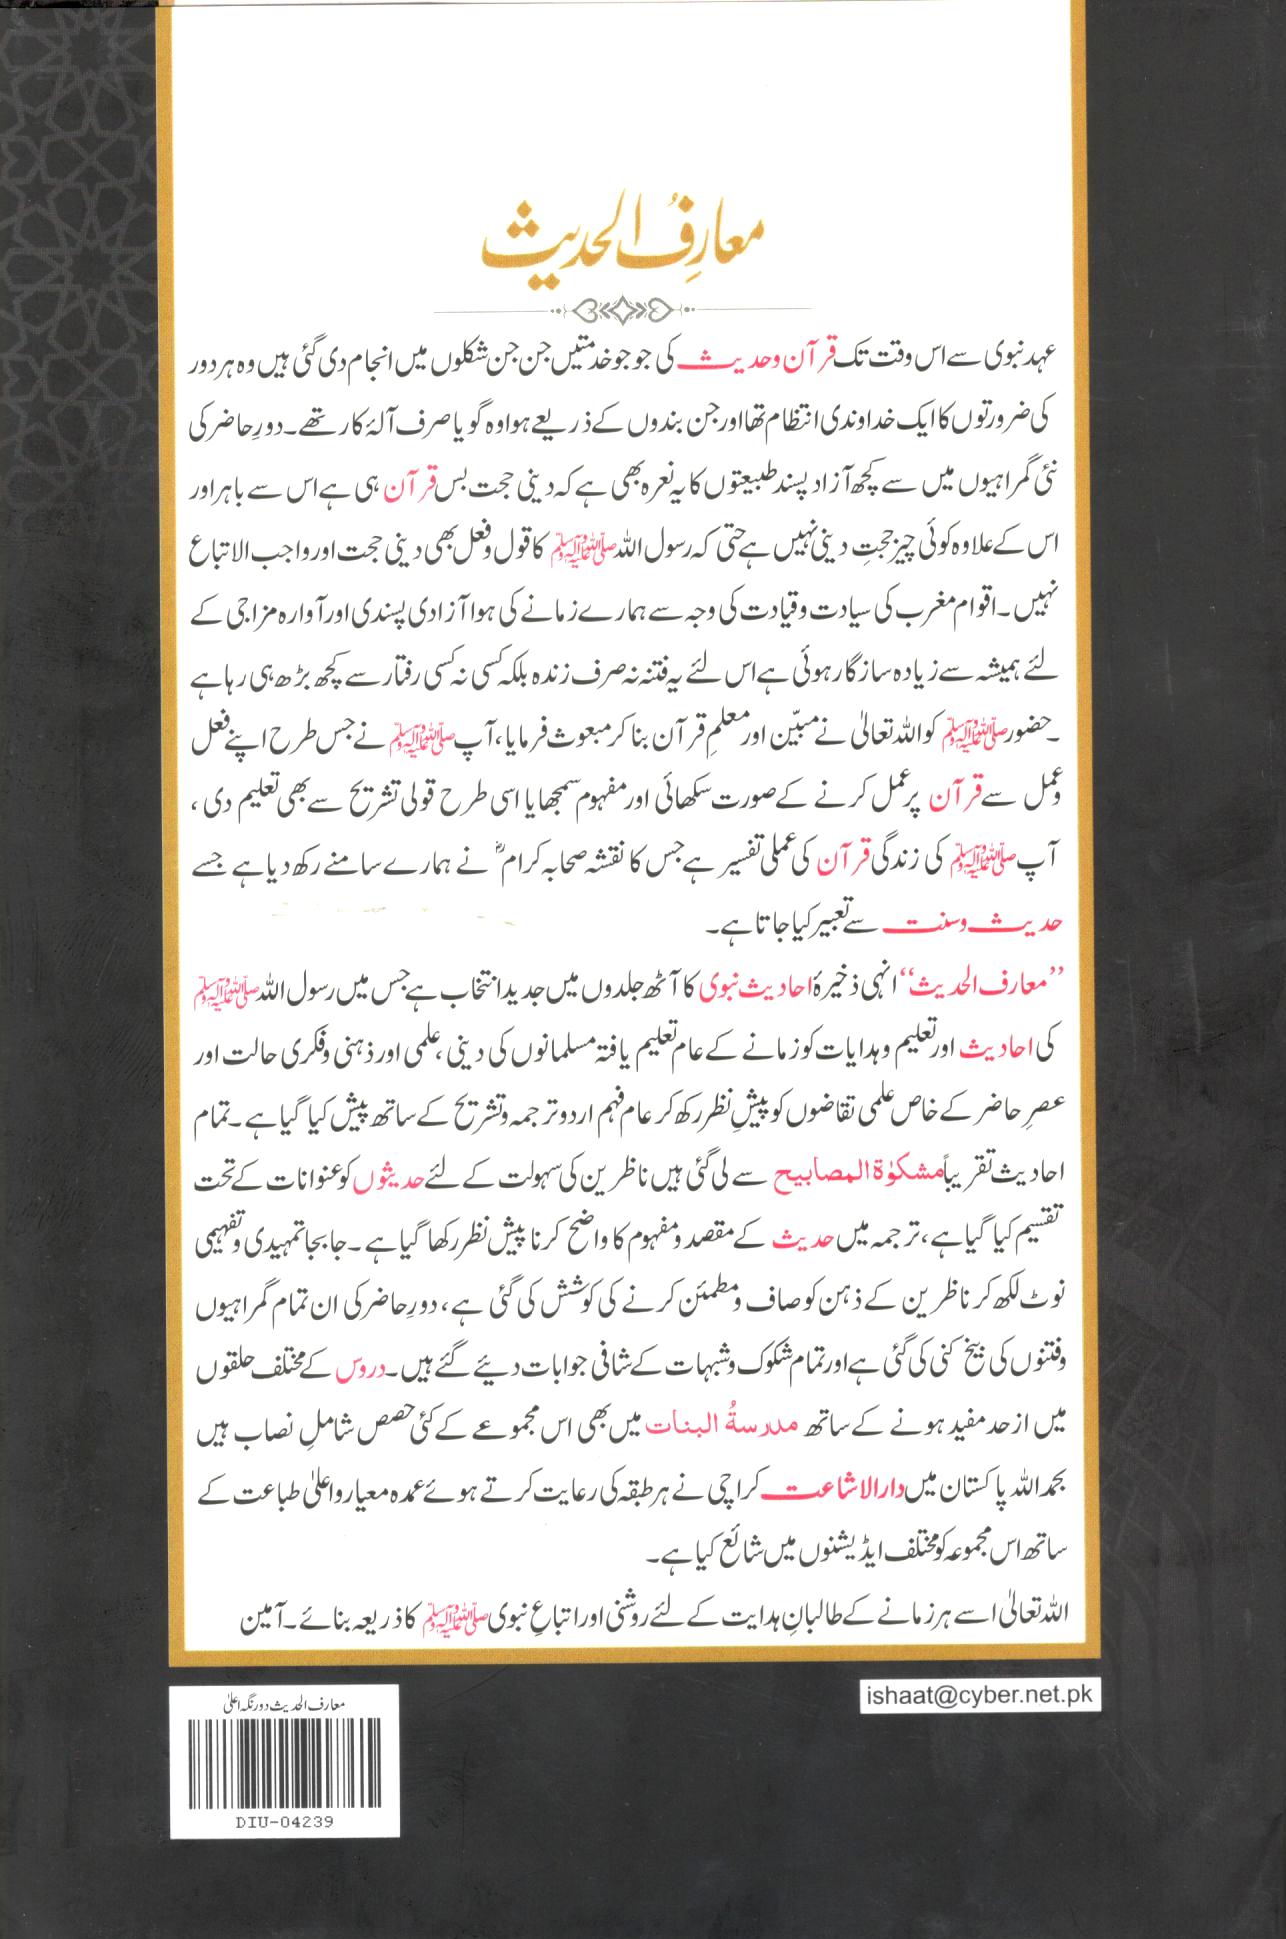 معارفُ الحدیث
عہد نبوی سے اس وقت تک قرآن وحدیث کی جو جو خدمتیں جن جن شکلوں میں انجام دی گئی ہیں وہ ہر دور
کی ضرورتوں کا ایک خداوندی انتظام تھا اور جن بندوں کے ذریعے ہوا وہ گویا صرف آلۂ کار تھے۔ دورِ حاضر کی
نئی گمراہیوں میں سے کچھ آزاد پسند طبیعتوں کا یہ نعرہ بھی ہے کہ دینی حجت بس قرآن ہی ہے اس سے باہر اور
اس کے علاوہ کوئی چیز حجتِ دینی نہیں ہے حتی کہ رسول اللہ ﷺ کا قول وفعل بھی دینی حجت اور واجب الاتباع
نہیں۔ اقوام مغرب کی سیادت وقیادت کی وجہ سے ہمارے زمانے کی ہوا آزادی پسندی اور آوارہ مزاجی کے
لئے ہمیشہ سے زیادہ سازگار ہوئی ہے اس لئے یہ فتنہ نہ صرف زندہ بلکہ کسی نہ کسی رفتار سے کچھ بڑھ ہی رہا ہے
۔حضور ﷺ کو اللہ تعالیٰ نے مبیّن اور معلمِ قرآن بنا کر مبعوث فرمایا، آپ ﷺ نے جس طرح اپنے فعل
وعمل سے قرآن پر عمل کرنے کے صورت سکھائی اور مفہوم سمجھایا اسی طرح قولی تشریح سے بھی تعلیم دی ،
آپ ﷺ کی زندگی قرآن کی عملی تفسیر ہے جس کا نقشہ صحابہ کرامؓ نے ہمارے سامنے رکھ دیا ہے جسے
حدیث وسنت سے تعبیر کیا جاتا ہے۔
”معارف الحدیث“ انہی ذخیرۂ احادیث نبوی کا آٹھ جلدوں میں جدید انتخاب ہے جس میں رسول اللہ ﷺ
کی احادیث اور تعلیم وہدایات کو زمانے کے عام تعلیم یافتہ مسلمانوں کی دینی ،علمی اور ذہنی وفکری حالت اور
عصرِ حاضر کے خاص علمی تقاضوں کو پیشِ نظر رکھ کر عام فہم اردو ترجمہ وتشریح کے ساتھ پیش کیا گیا ہے۔ تمام
احادیث تقریباً مشکوٰۃ المصابیح سے لی گئی ہیں ناظرین کی سہولت کے لئے حدیثوں کو عنوانات کے تحت
تقسیم کیا گیا ہے، ترجمہ میں حدیث کے مقصد ومفہوم کا واضح کرنا پیش نظر رکھا گیا ہے۔ جابجا تمہیدی وتفہیمی
نوٹ لکھ کر ناظرین کے ذہن کو صاف ومطمئن کرنے کی کوشش کی گئی ہے، دورِ حاضر کی ان تمام گمراہیوں
وفتنوں کی بیخ کنی کی گئی ہے اور تمام شکوک وشبہات کے شافی جوابات دیئے گئے ہیں۔ دروس کے مختلف حلقوں
میں ازحد مفید ہونے کے ساتھ مدرسۃُ البنات میں بھی اس مجموعے کے کئی حصص شاملِ نصاب ہیں
بحمد اللہ پاکستان میں دارالاشاعت کراچی نے ہر طبقہ کی رعایت کرتے ہوئے عمدہ معیار واعلیٰ طباعت کے
ساتھ اس مجموعہ کو مختلف ایڈیشنوں میں شائع کیا ہے۔
اللہ تعالیٰ اسے ہر زمانے کے طالبانِ ہدایت کے لئے روشنی اور اتباعِ نبوی ﷺ کا ذریعہ بنائے۔ آمین
ishaat@cyber.net.pk
معارف الحدیث دو رنگہ اعلیٰ
DIU-04239